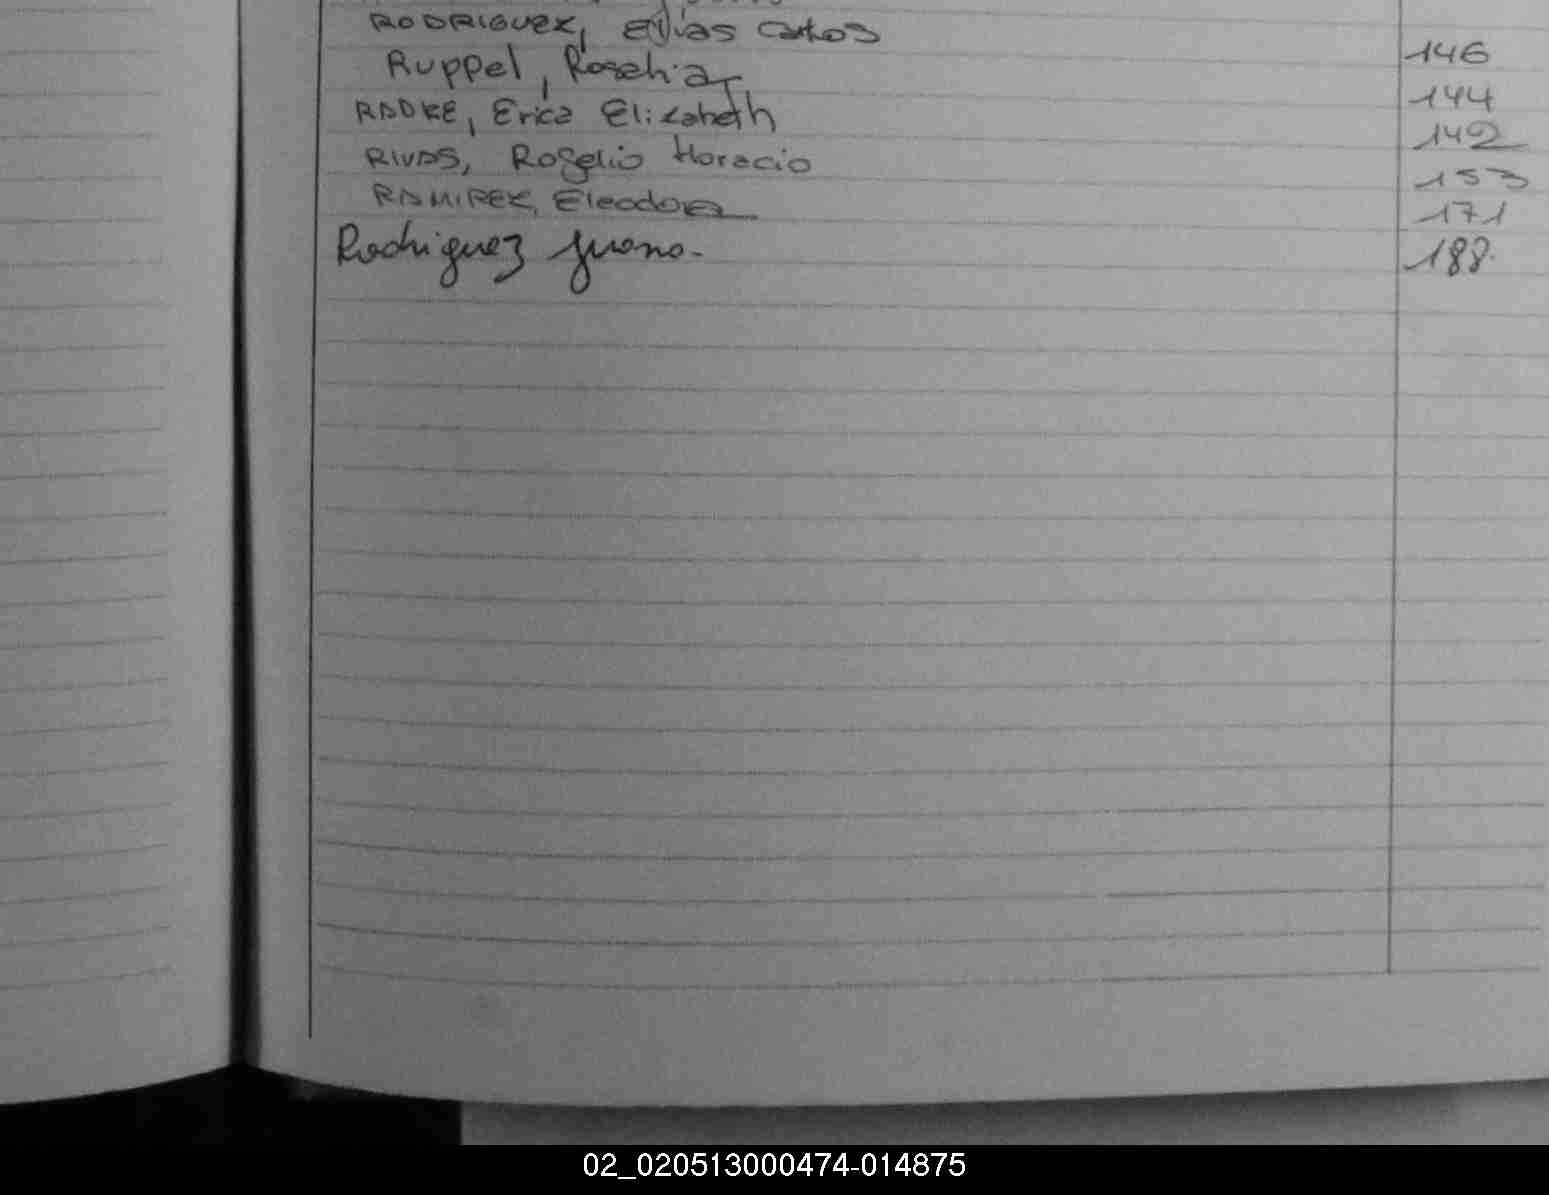 RODRIGUEZ, Elias Carlos 146
Ruppel, Roselia 144
RADKE, Erica Elizabeth 142
RIVAS, Rogelio Horacio 153
RAMIREZ, Eleodora 171
Rodriguez Juana. 188.
02_020513000474-014875